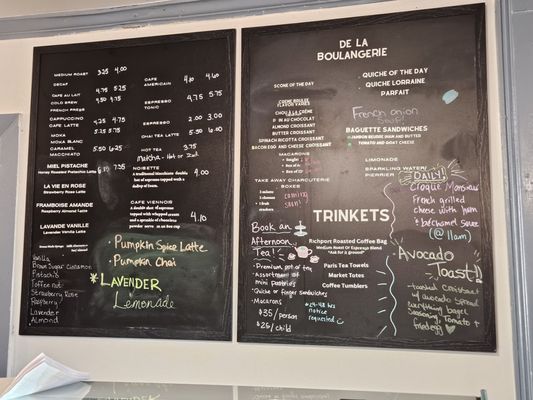 MEDIUM ROAST 3.25 4.00
DECAF
CAFE AU LAIT 4.75 5.25
COLD BREW 4.50 4.75
FRENCH PRESS
CAPPUCCINO
CAFE LATTE 4.75 5.75
MOKA 5.25 5.75
MOKA BLANC
CARAMEL MACCHIATO 5.50 6.25
MIEL PISTACHE 7.25
Honey Roasted Pistachio Latte
LA VIE EN ROSE
Strawberry Rose Latte
FRAMBOISE AMANDE
Raspberry Almond Latte
LAVANDE VANILLE
Lavender Vanilla Latte
Vanilla
Brown Sugar Cinnamon
Pistachio
Toffee nut
Strawberry Rose
Raspberry
Lavender
Almond
CAFE AMERICAIN 4.10 4.60
ESPRESSO TONIC 4.75 5.75
ESPRESSO 2.00 3.00
CHAI TEA LATTE 5.50 6.00
HOT TEA 3.75
Matcha - Hot or Iced
NOISETTE 4.00
A traditional macchiato of espresso topped with a dollop of foam.
CAFE VIENNOIS 4.10
A double shot of espresso topped with whipped cream and a sprinkle of chocolate powder
Pumpkin Spice Latte
Pumpkin Chai
*LAVENDER
Lemonade
DE LA
BOULANGERIE
SCONE OF THE DAY
CHOU A LA CRÈME
D' IN AU CHOCOLAT
ALMOND CROISSANT
BUTTER CROISSANT
SPINACH RICOTTA CROISSANT
BACON EGG AND CHEESE CROISSANT
MACARONS
TAKE AWAY CHARCUTERIE
BOXES
coming soon!
QUICHE OF THE DAY
QUICHE LORRAINE
PARFAIT
French onion
Soup!
BAGUETTE SANDWICHES
TOMATO AND GOAT CHEESE
LIMONADE
SPARKLING WATER
PIERRIER
DAILY!
Croque Monsieur
French grilled
cheese with ham
+ bechamel sauce
(@ 11am)
Avocado
Toast!!
- toasted croissant
w/ avocado spread
everything bagel
seasoning, tomato +
fried egg
TRINKETS
Richport Roasted Coffee Bag
"Ask for a ground!"
Paris Tea Towels
Market Totes
Coffee Tumblers
Book an
Afternoon
Tea!
- Premium pot of tea
- Assortment of
mini pastries
- Quiche or finger sandwiches
- Macarons
$35/person
$25/child
*24-48 hrs
notice
requested